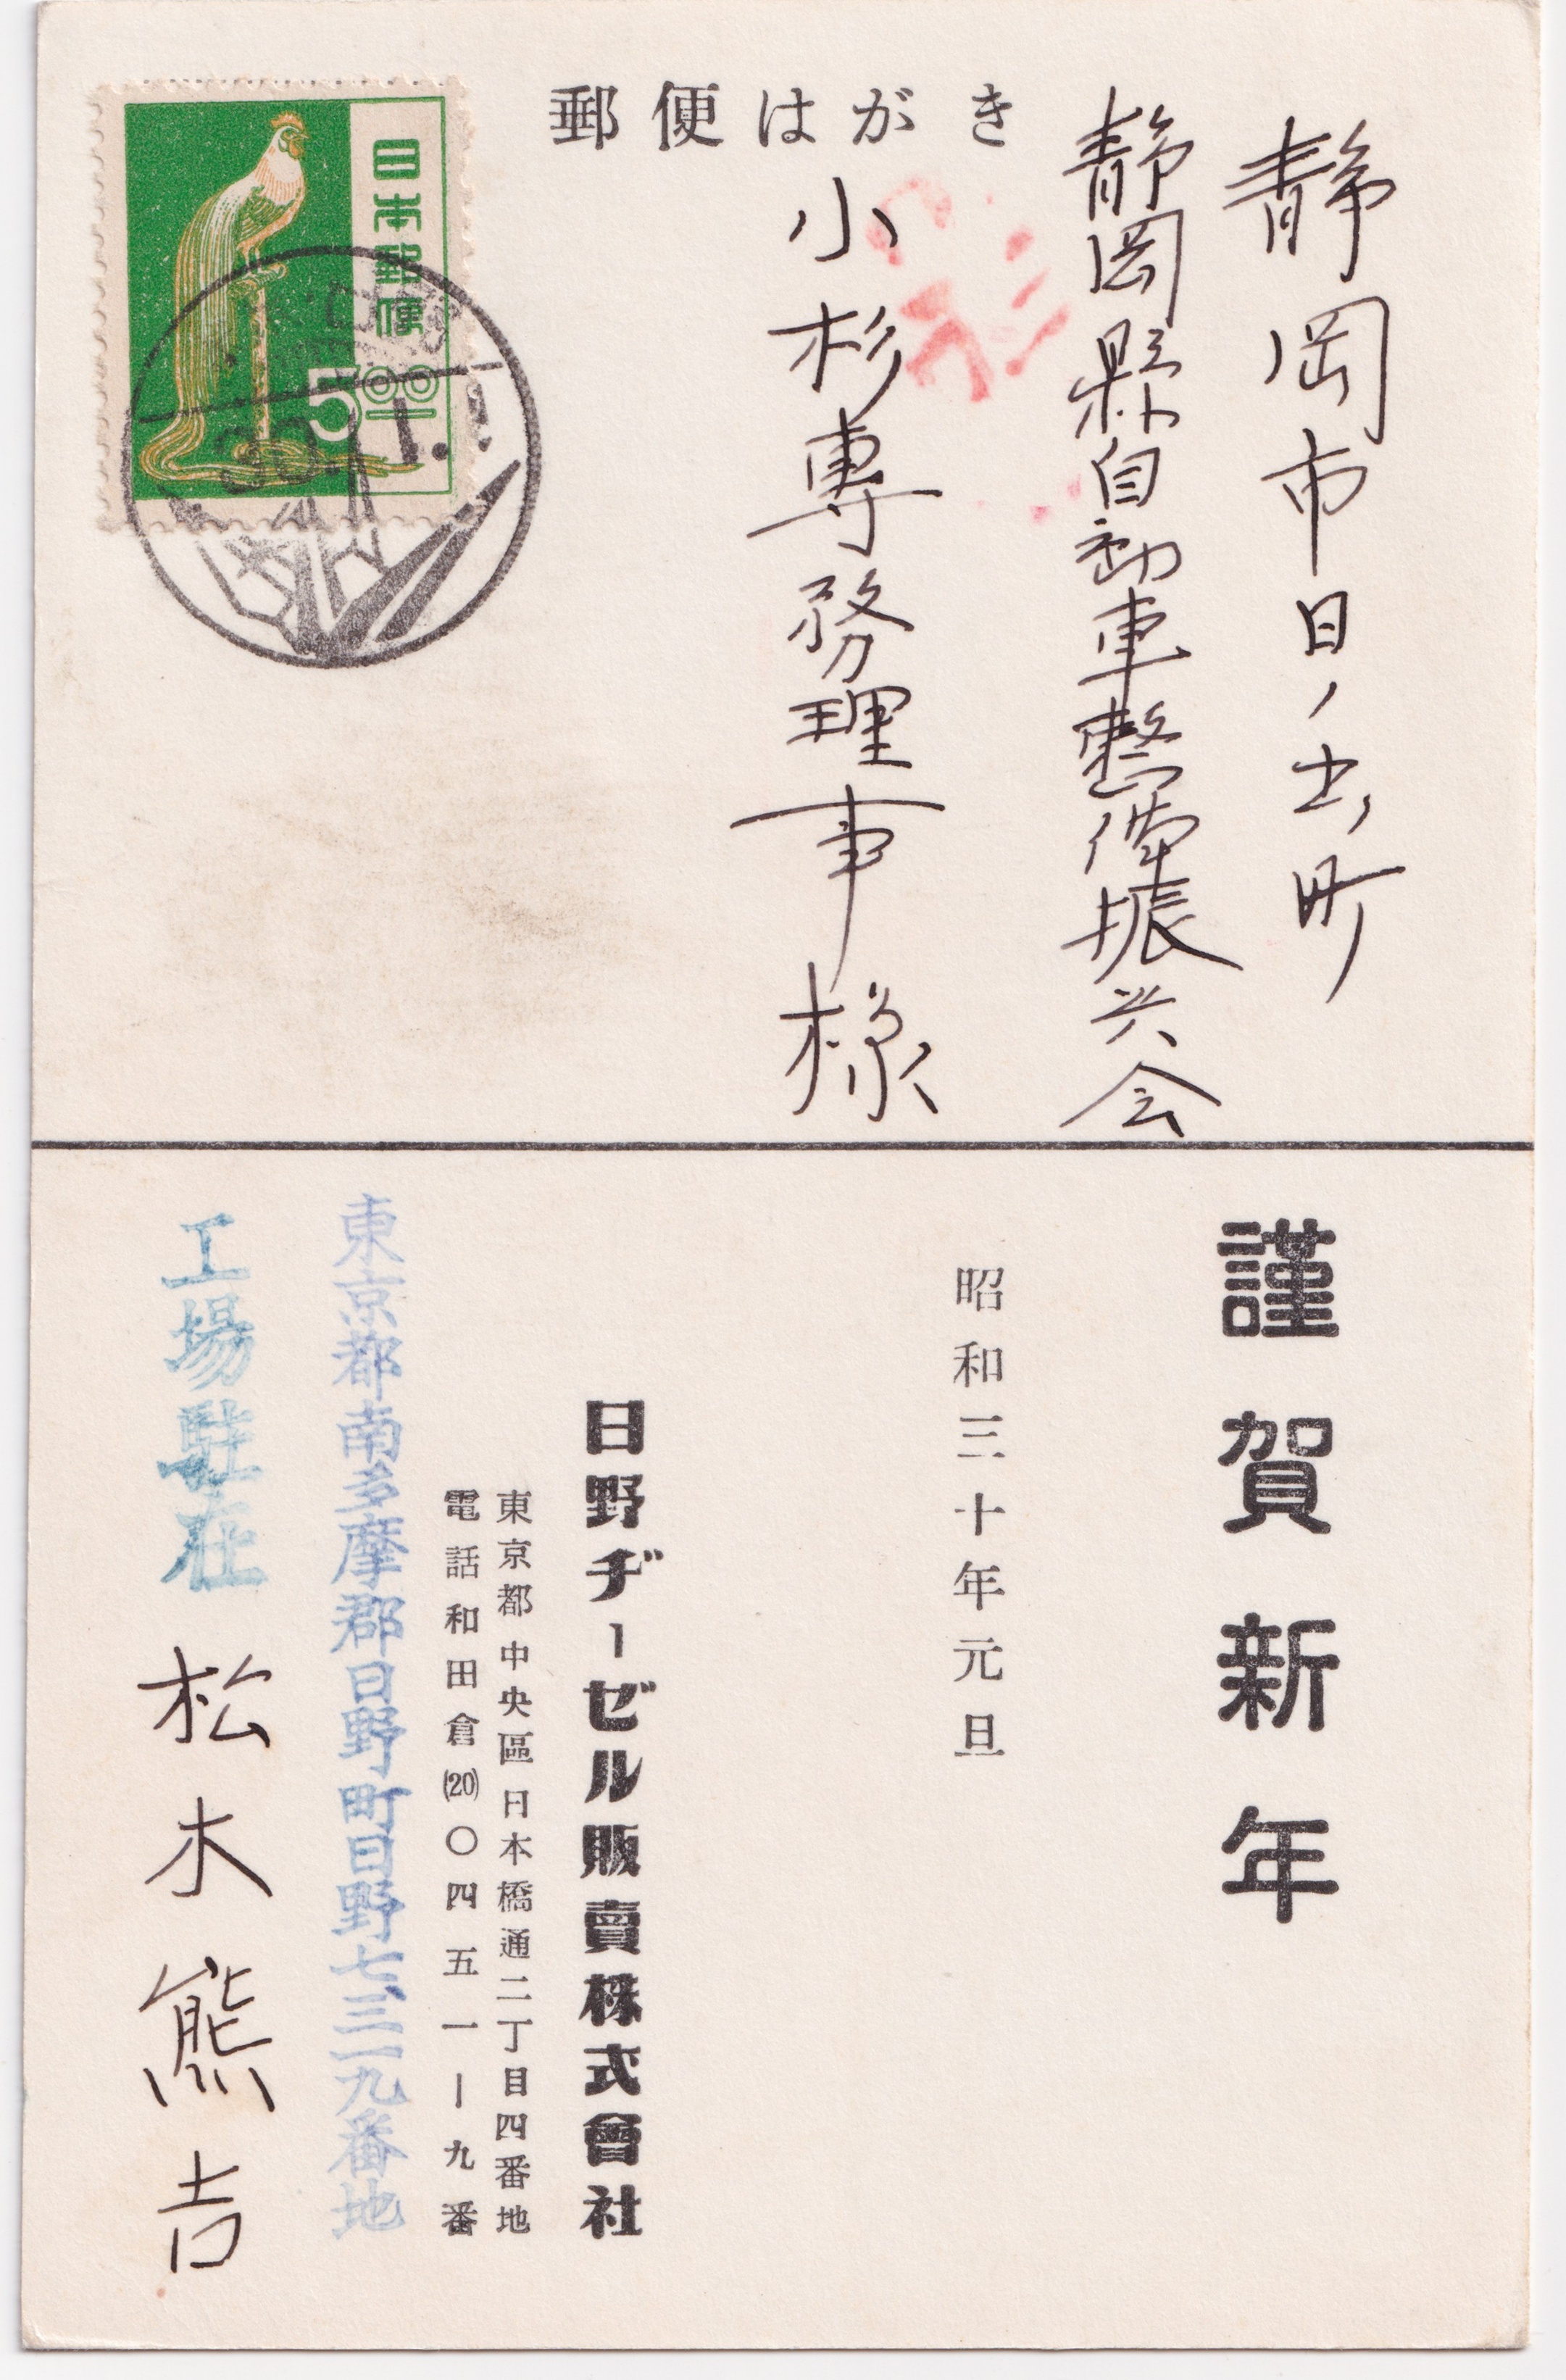 郵便はがき
日本郵便
500
30.1.1.
静岡市日ノ出町
静岡縣自動車整備振興会
小杉専務理事様
謹賀新年
昭和三十年元旦
日野ヂーゼル販賣株式會社
東京都中央區日本橋通二丁目四番地
電話和田倉(20)〇四五一ー九番
東京都南多摩郡日野町日野七、三一九番地
工場駐在 松木熊吉